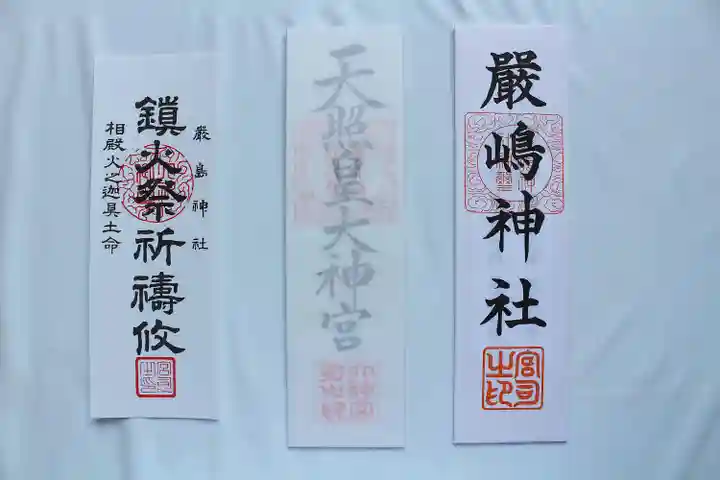 嚴嶋神社
宮司之印
天照皇大神宮
嚴島神社
鎮火祭祈禱攸
相殿火之迦具土命